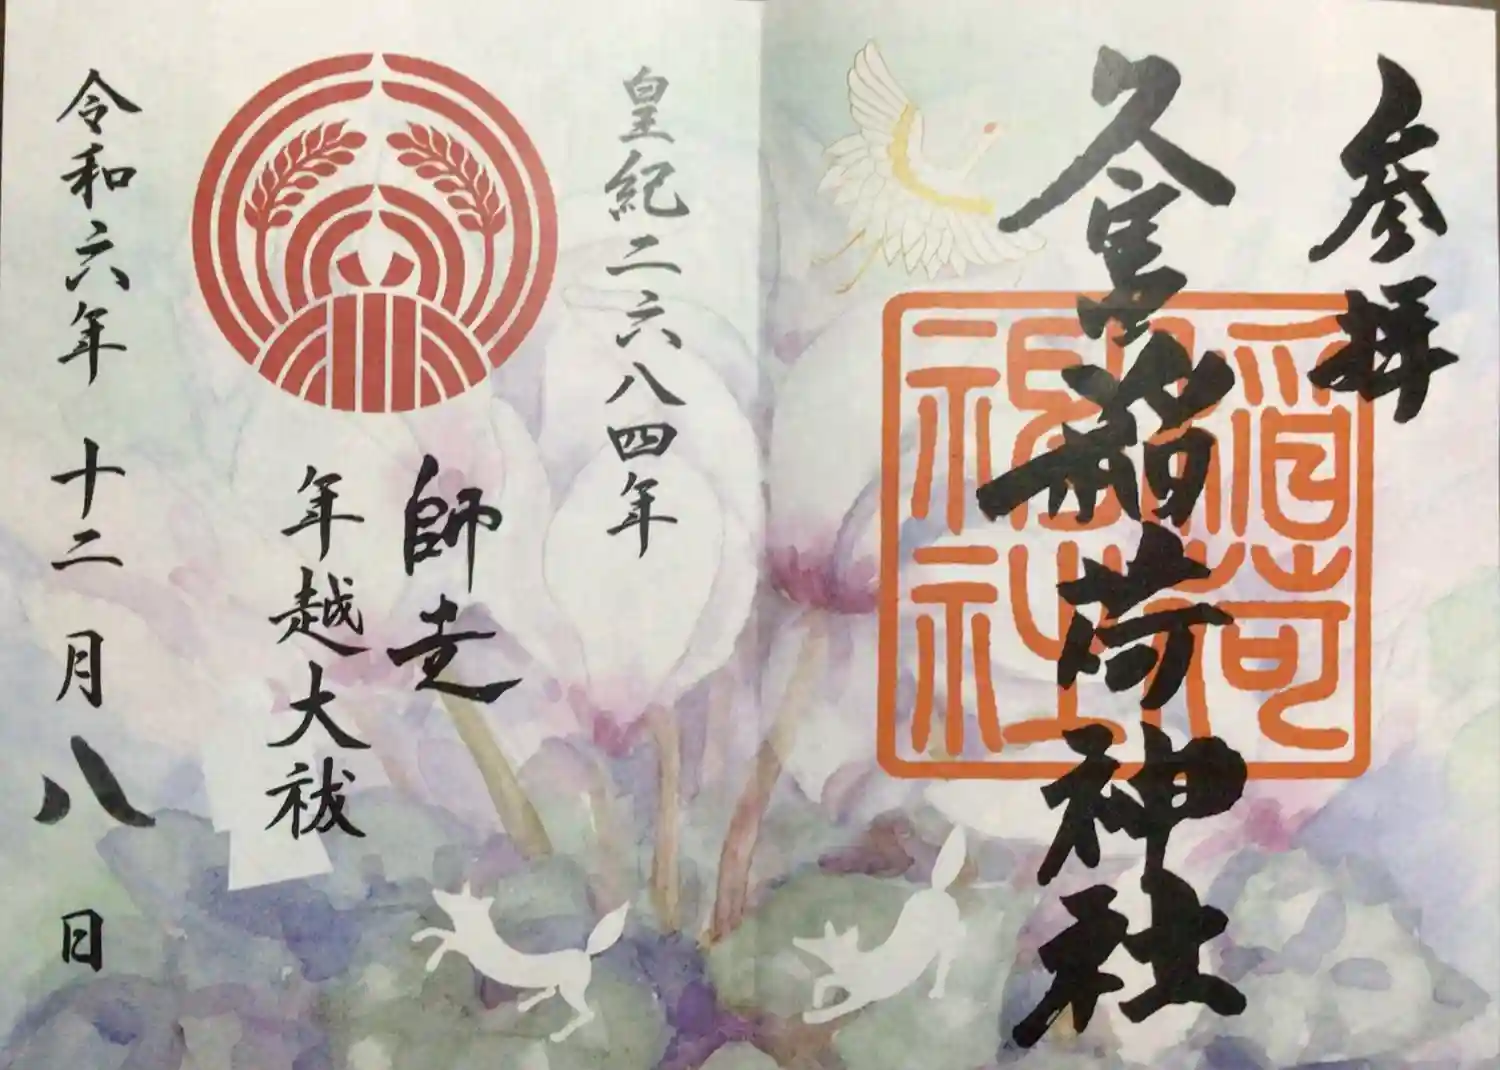 参拝
久富稲荷神社
稲荷
神社
皇紀二六八四年
師走
年越大祓
令和六年 十二月八日